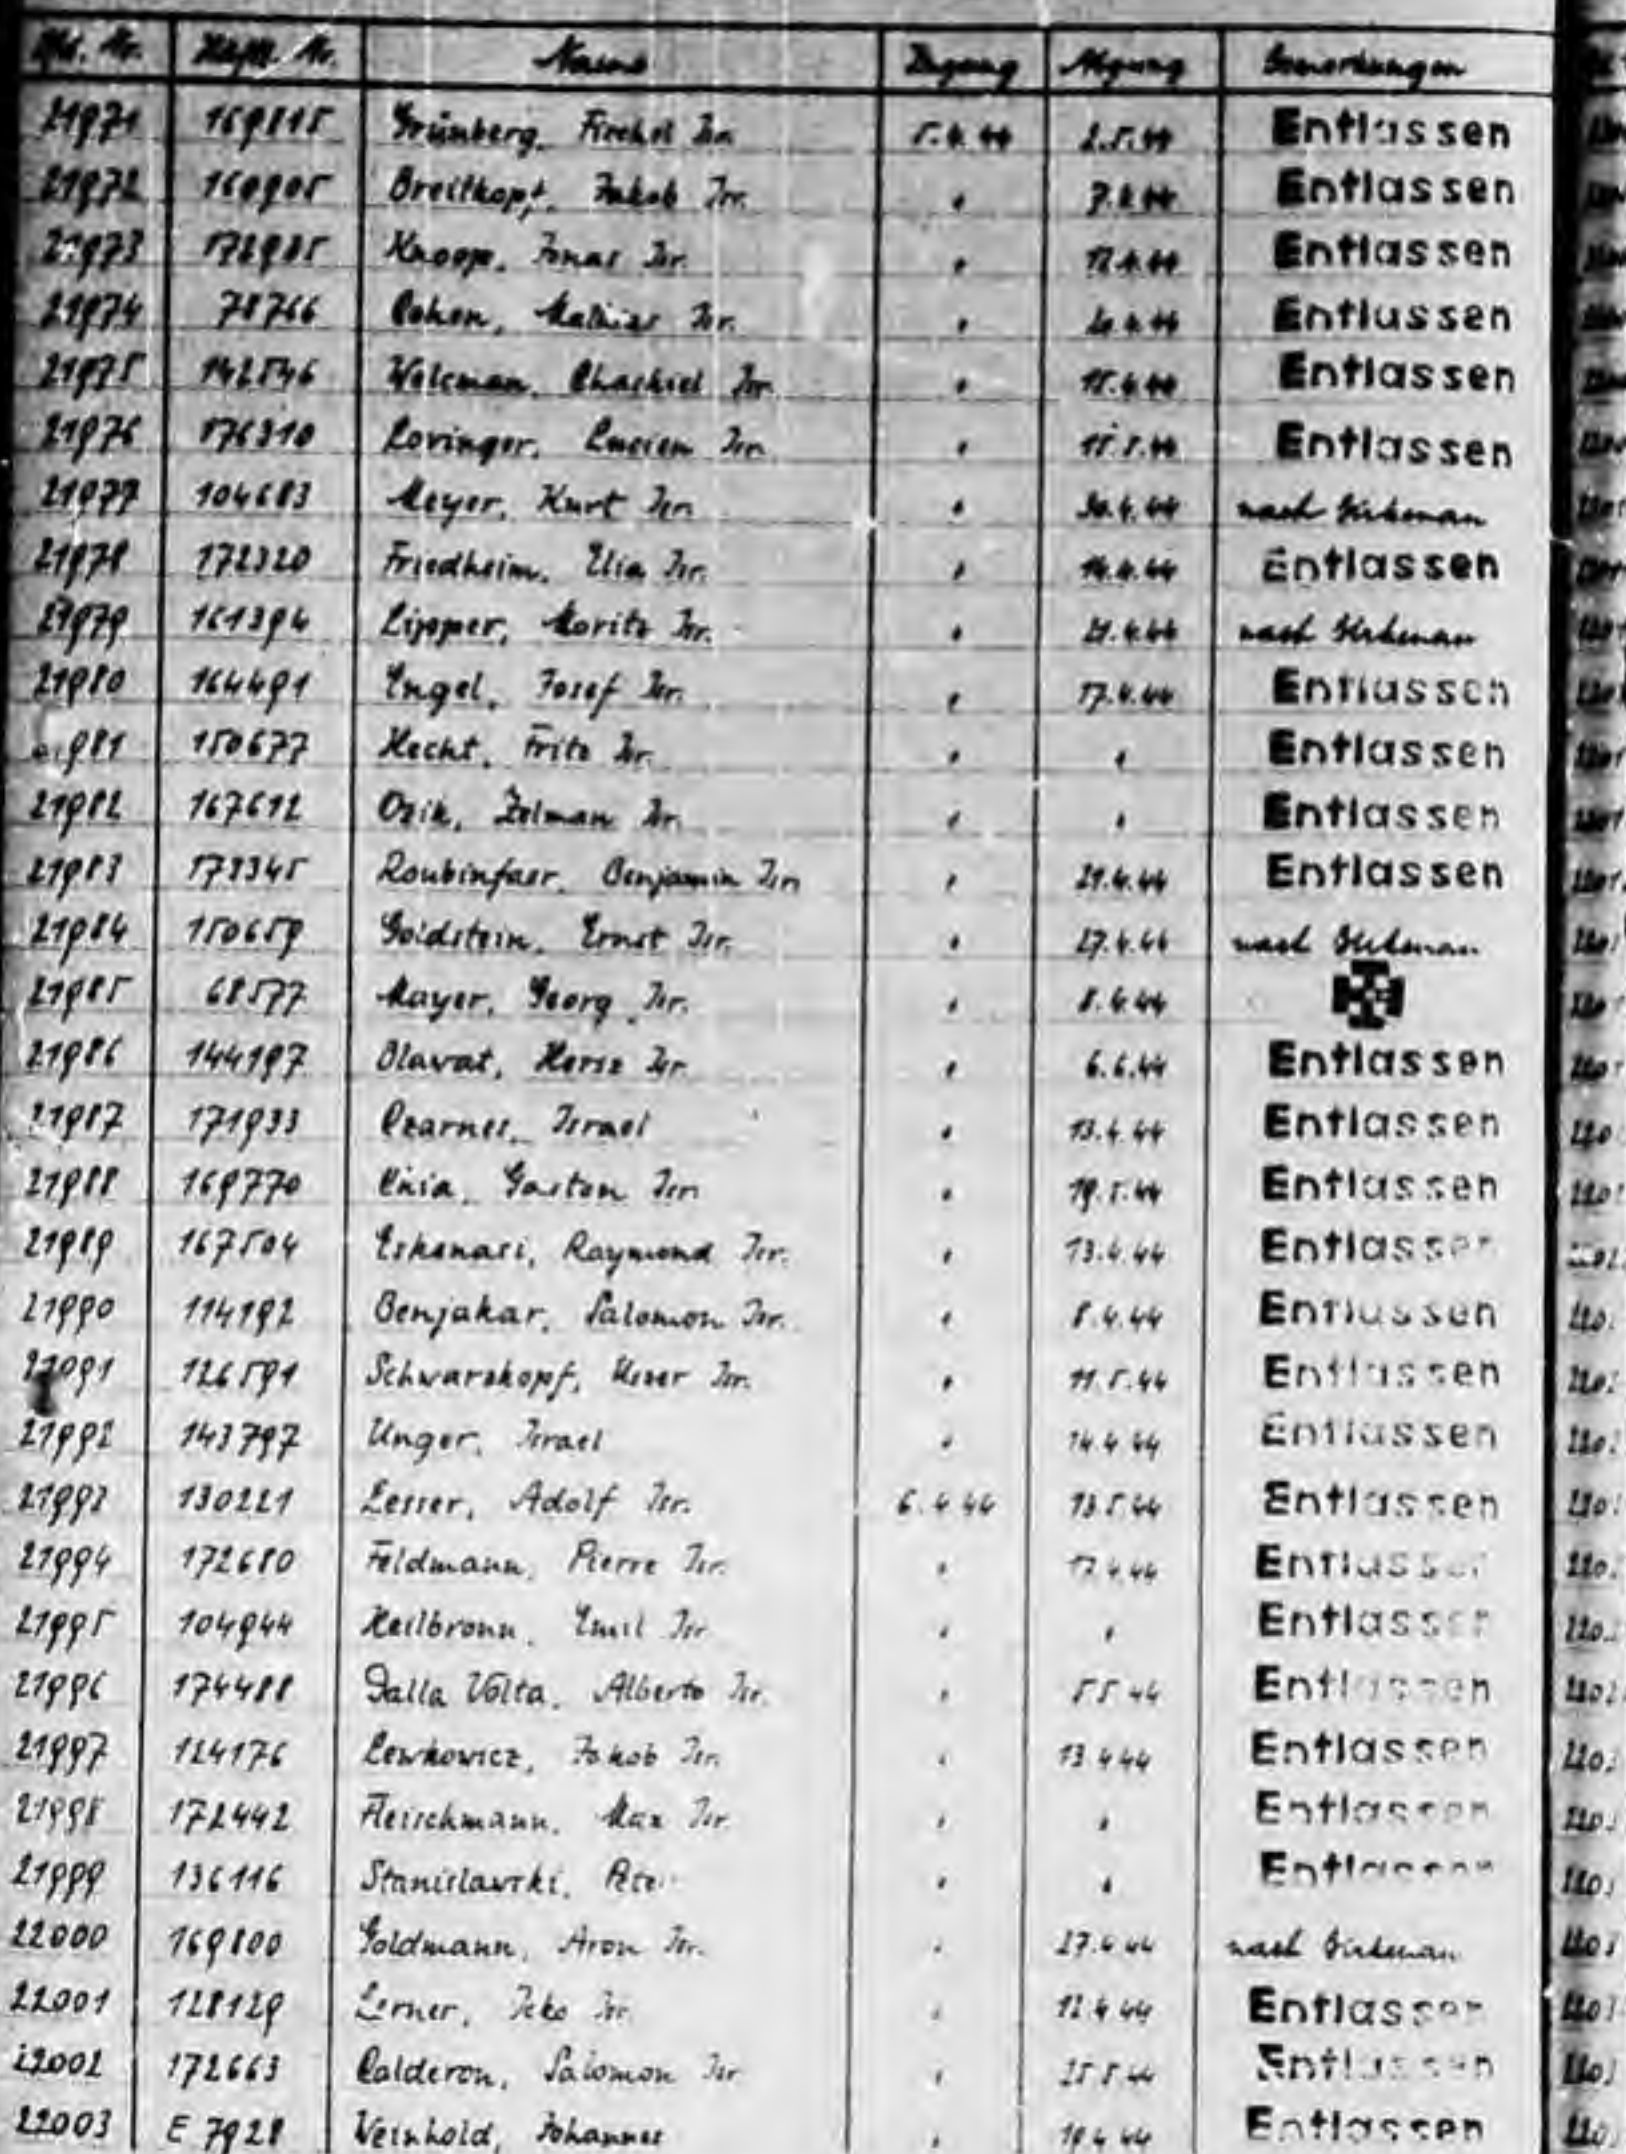 Lfd. Nr. Häftl. Nr. Name Zugang Abgang Bemerkungen
21971 169815 Grünberg, Isr. 5.4.44 2.5.44 Entlassen
21972 160905 Breitkopf, Jakob Isr. " 7.4.44 Entlassen
21973 172935 Knoop, Jonas Isr. " Entlassen
21974 78766 Cohen, Mathias Isr. " Entlassen
21975 142546 Welcman, Chaskiel Isr. " 15.4.44 Entlassen
21976 176310 Lovinger, Lucien Isr. " 15.5.44 Entlassen
21977 104683 Meyer, Kurt Isr. " 30.4.44 nach Birkenau
21978 172320 Friedheim, Elia Isr. " 14.4.44 Entlassen
21979 161394 Lipper, Moritz Isr. " 21.4.44 nach Birkenau
21980 164491 Engel, Josef Isr. " 17.4.44 Entlassen
21981 150677 Hecht, Fritz Isr. " " Entlassen
21982 167612 Ozik, Zelman Isr. " " Entlassen
21983 173345 Roubinfaer, Benjamin Isr. " 21.4.44 Entlassen
21984 150659 Goldstein, Ernst Isr. " 27.4.44 nach Birkenau
21985 68577 Mayer, Georg Isr. " 8.4.44
21986 144197 Olawat, Hersz Isr. " 6.6.44 Entlassen
21987 171933 Czarnes, Israel " 13.4.44 Entlassen
21988 169770 Gaston Isr. " 19.5.44 Entlassen
21989 167504 Eskenasi, Raymond Isr. " 13.4.44 Entlassen
21990 114192 Benjakar, Salomon Isr. " 8.4.44 Entlassen
21991 126591 Schwarzkopf, Isr. " 11.5.44 Entlassen
21992 143797 Unger, Israel " 14.4.44 Entlassen
21993 130221 Lesser, Adolf Isr. 6.4.44 13.5.44 Entlassen
21994 172680 Feldmann, Pierre Isr. " 17.4.44 Entlassen
21995 104944 Heilbronn, Emil Isr. " " Entlassen
21996 174488 Dalla Volta, Alberto Isr. " 5.5.44 Entlassen
21997 124176 Lewkowicz, Jakob Isr. " 13.4.44 Entlassen
21998 172442 Fleischmann, Max Isr. " " Entlassen
21999 136116 Stanislawski, " " Entlassen
22000 169800 Goldmann, Aron Isr. " 27.4.44 nach Birkenau
22001 128129 Lerner, Isr. " 12.4.44 Entlassen
22002 172663 Calderon, Salomon Isr. " 25.5.44 Entlassen
22003 E 7928 Weinhold, Johannes " 19.4.44 Entlassen